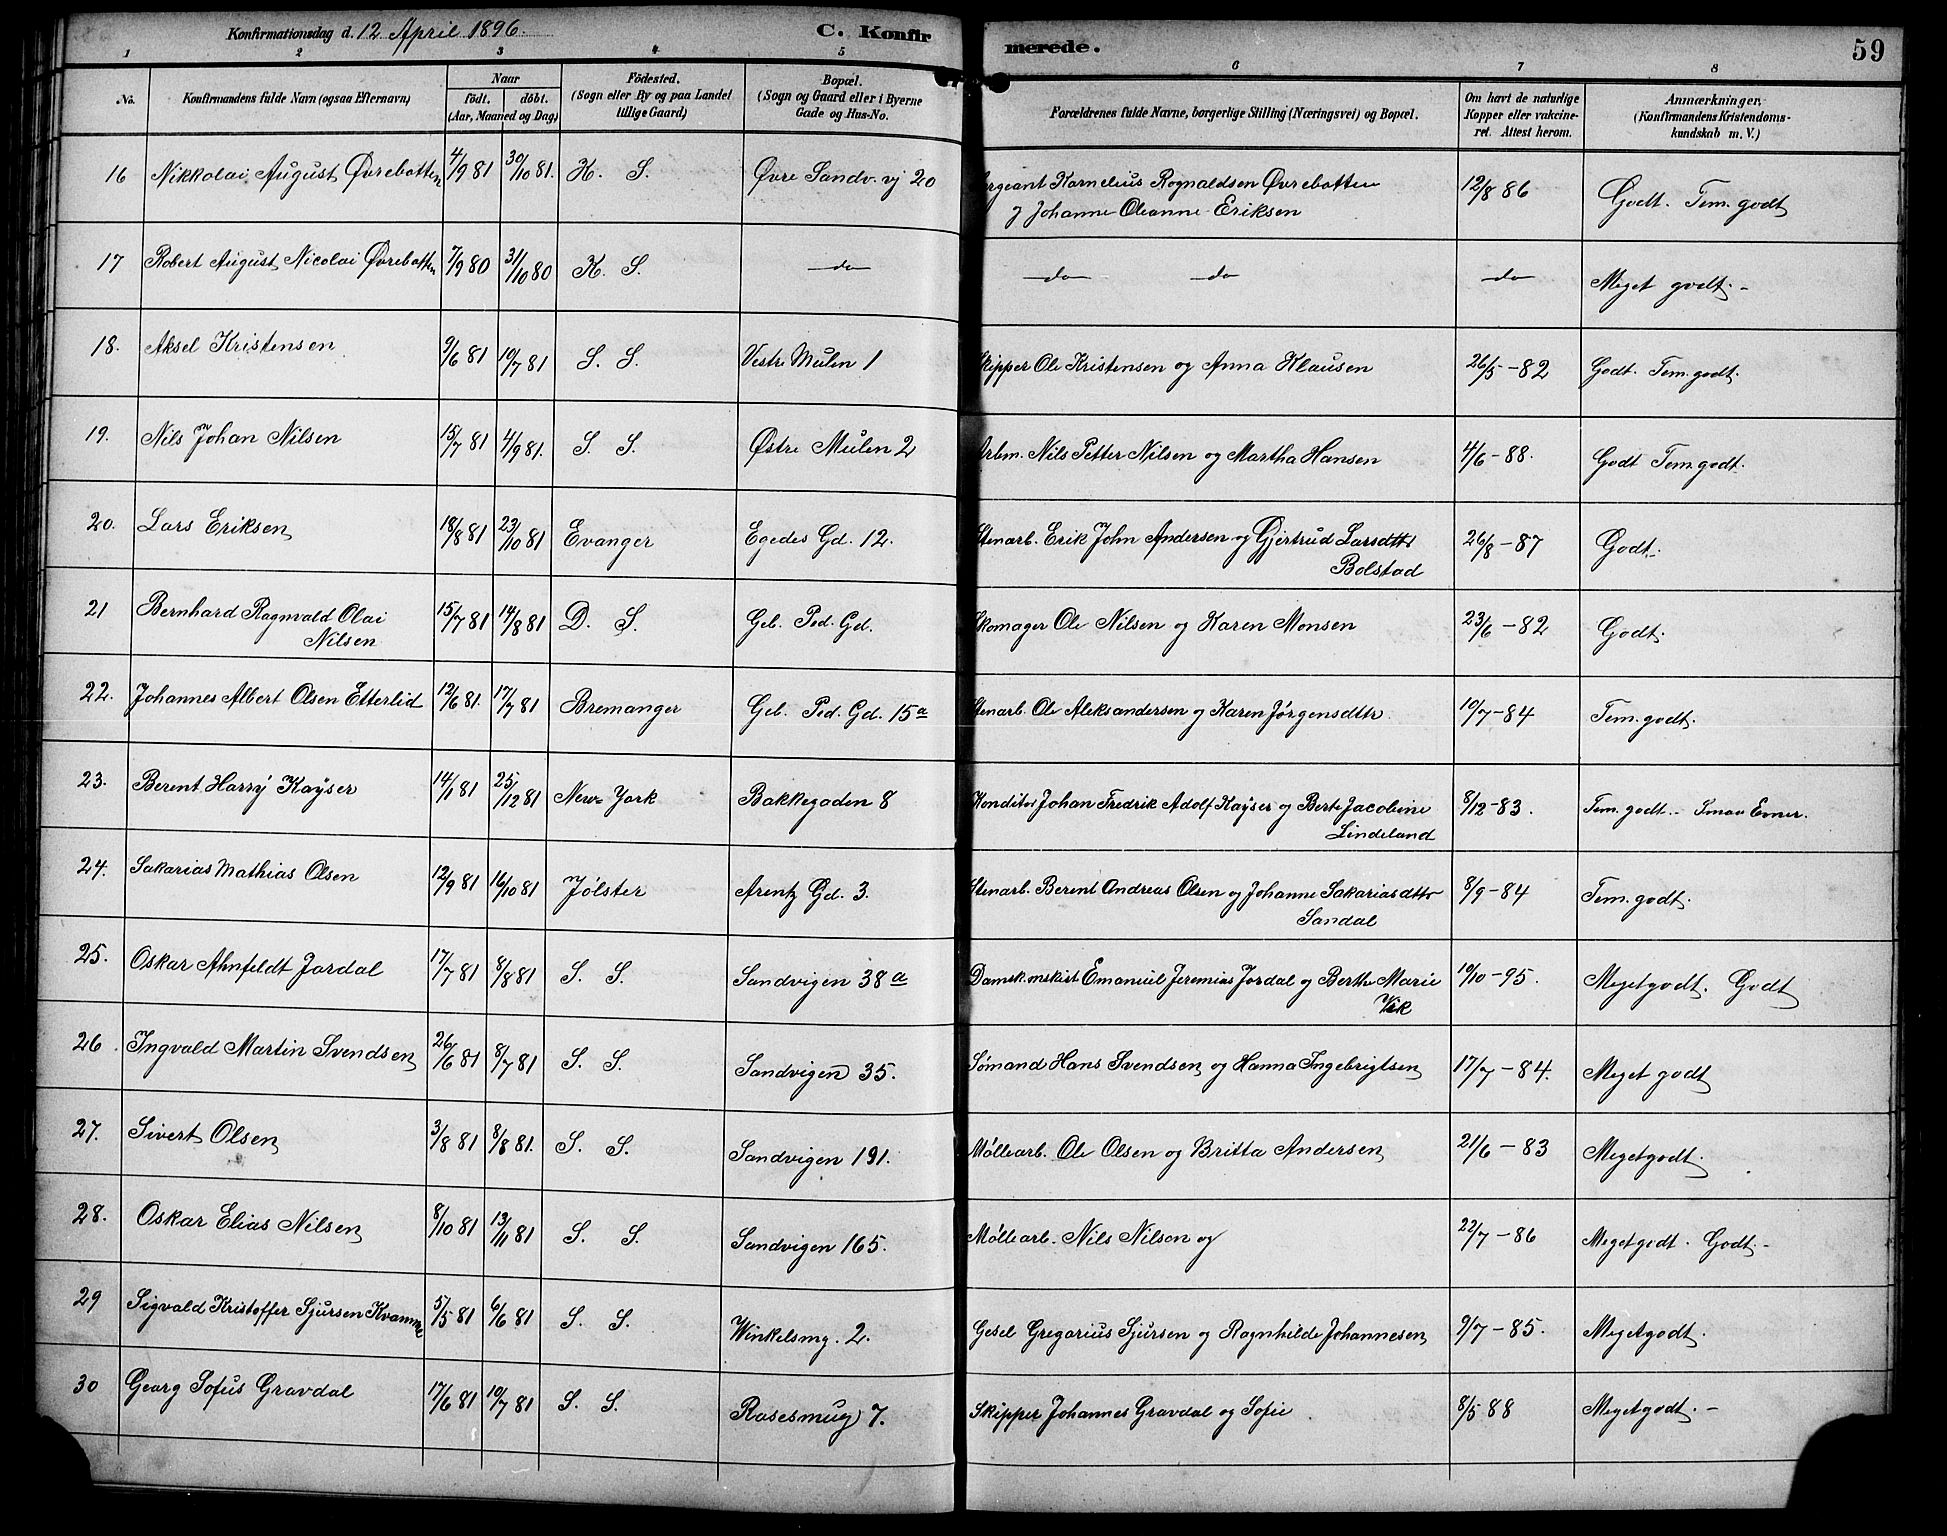 Konfirmationsdag d. 12 April 1896. C. Konfir merede. 59
1 2 3 4 5 6 7 8
No. Konfirmandens fulde Navn (ogsaa Efternavn) Naar födt. döbt. (Aar, Maaned og Dag) Födested. (Sogn eller By og paa Landet tillige Gaard) Bopæl. (Sogn og Gaard eller i Byerne Gade og Hus-No. Forældrenes fulde Navne, borgerlige Stilling (Næringsvei) og Bopæl. Om havt de naturlige Kopper eller vakcineret. Attest herom. Anmærkninger. (Konfirmandens Kristendomskundskab m. V.)
16 Nikkolai August Øvrebotten 4/9 81 30/10 81. K. S. Øvre Sandv. vj 20 Sergeant Kornelius Rognaldsen Øvrebotten 12/8 86 Godt. Tem. godt
og Johanne Oleanne Eriksen
17 Robert August Nicolai Øvrebotten 7/9 80 31/10 80 K. S. do do do do Meget godt. -
18. Aksel Kristensen 9/6 81 10/7 81 S. S. Vestre Mulen 1 Skipper Ole Kristensen og Anna Klausen 26/5 - 82 Godt. Tem. godt.
19. Nils Johan Nilsen 15/7 81 4/9 81. S. S. Østre Mulen 2 Arbm. Nils Petter Nilsen og Martha Hansen 4/6 - 88. Godt Tem. godt.
20. Lars Eriksen 18/8 81 23/10 81 Evanger Egedes Gd. 12. Stenarb. Erik John Andersen og Gjertrud Larsdttr 26/8 - 87 Godt.
Bolstad
21 Bernhard Ragnvald Olai 15/7 81 14/8 81 D. S. Geb. Ped. Gd. Skomager Ole Nilsen og Karen Monsen 23/6 - 82 Godt.
Nilsen
22. Johannes Albert Olsen Etterlid 12/6 81. 17/7 81 Bremanger Geb. Ped. Gd. 15a Stenarb. Ole Aleksandersen og Karen Jørgensdttr. 10/7 - 84 Tem. godt.
23. Berent Harry Kayser 14/1 81 25/12 81 New-York Bakkegaden 8 Konditor Johan Fredrik Adolf Kayser og Berte Jacobine 8/12 - 83. Tem. godt. - Smaa Evner.
Lindeland
24. Sakarias Mathias Olsen 12/9 81 16/10 81 Jölster Arentz Gd. 3. Stenarb. Berent Andreas Olsen og Johanne Sakariasdttr 8/9 - 84 Tem. godt.
Sandal
25. Oskar Ahnfeldt Jordal 17/7 81 8/8 81 S. S. Sandvigen 38a Damsk.maskist Emanuel Jeremias Jordal og Berthe Marie 10/10 - 95. Megetgodt. Godt
Vik
26. Ingvald Martin Svendsen 26/6 81 8/7 81 S. S. Sandvigen 35. Sömand Hans Svendsen og Hanna Ingebrigtsen 17/7 - 84. Meget godt
27. Sivert Olsen 3/8 81 8/8 81. S. S. Sandvigen 191. Møllearb. Ole Olsen og Britta Andersen 21/6 - 83 Megetgodt.
28. Oskar Elias Nilsen 8/10 81 13/11 81 S. S. Sandvigen 165. Møllearb. Nils Nilsen og 22/7 - 86 Megetgodt. Godt. -
29 Sigvald Kristoffer Sjursen Kvamme 5/5 81 6/6 81 S. S. Winkelsmg. 2. Gesel Gregarius Sjursen og Ragnhilde Johannesen 9/7 - 85. Megetgodt.
30 Georg Sofus Gravdal 17/6 81 10/7 81 S. S. Rosesmug 7. Skipper Johannes Gravdal og Sofie 8/5 88 Megetgodt. -